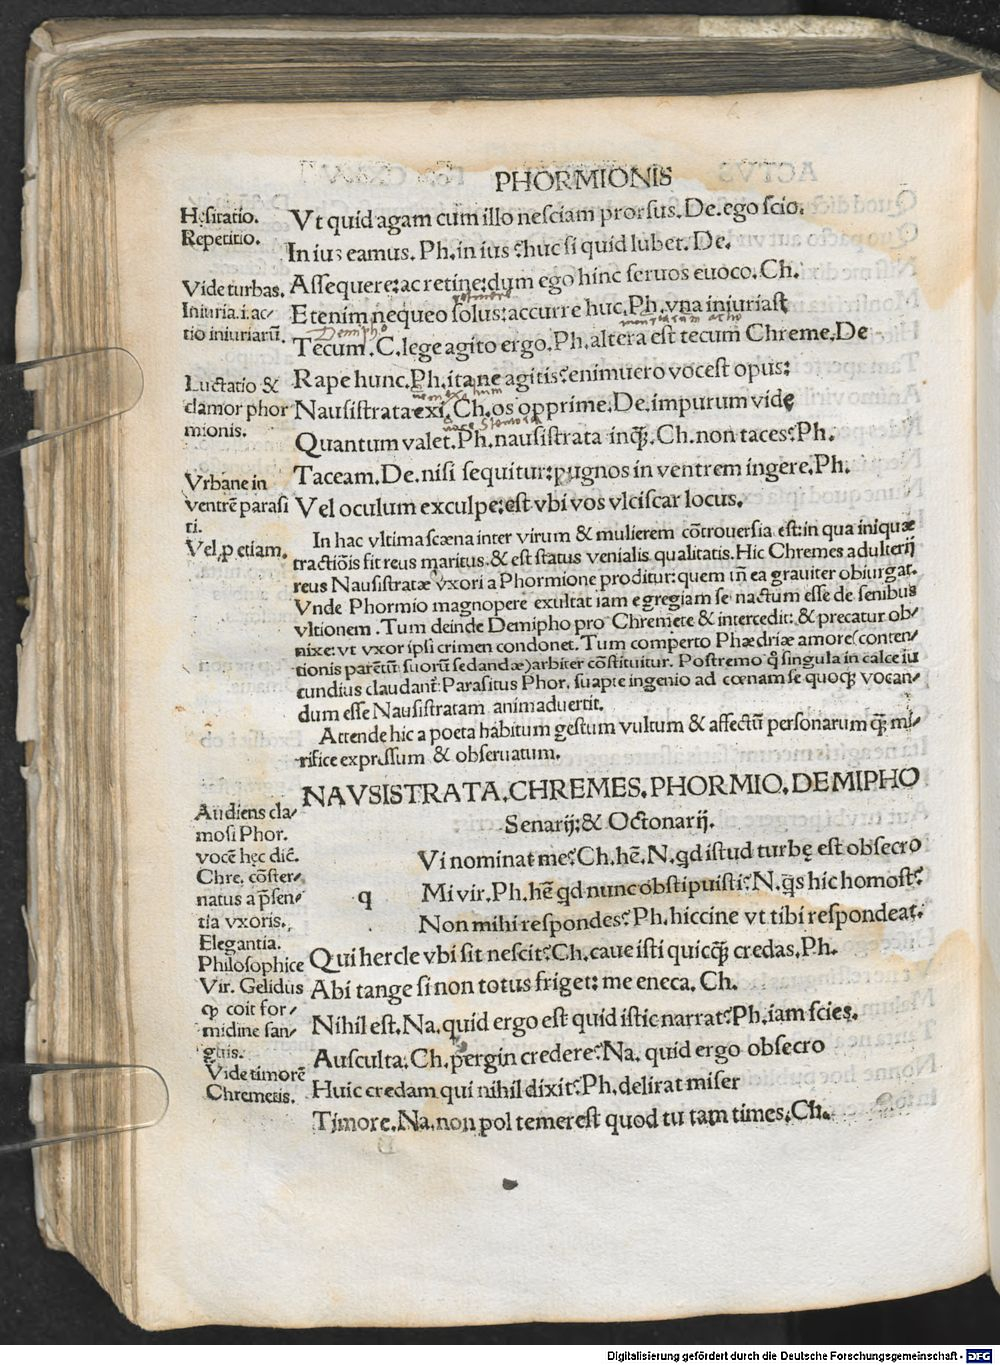 PHORMIONIS
Hęsitatio.
Repetitio.
Vide turbas.
Iniuria.i.ac-
tio iniuriarū.
Luctatio &
clamor phor
mionis.
Vrbane in
ventrē parasi
ti.
Vel,p etiam.
Vt quid agam cum illo nesciam prorsus. De. ego scio.
In ius eamus. Ph. in ius? huc si quid lubet. De.
Assequere: ac retine: dum ego hinc seruos euoco. Ch.
Etenim nequeo solus: accurre huc. Ph. vna iniuriast
Demipho
Tecum. C. lege agito ergo. Ph. altera est tecum Chreme. De
Rape hunc. Ph. itane agitis? enimuero vocest opus:
Nausistrata exi. Ch. os opprime. De. impurum vidę
Quantum valet. Ph. nausistrata inqͣ. Ch. non taces? Ph.
Taceam. De. nisi sequitur: pugnos in ventrem ingere. Ph.
Vel oculum exculpe: est vbi vos vlciscar locus.
In hac vltima scæna inter virum & mulierem cōtrouersia est: in qua iniquæ
tractiōis fit reus maritus. & est status venialis qualitatis. Hic Chremes adulterij
reus Nausistratæ vxori a Phormione proditur: quem tn̄ ea grauiter obiurgat.
Vnde Phormio magnopere exultat iam egregiam se nactum esse de senibus
vltionem. Tum deinde Demipho pro Chremete & intercedit: & precatur ob-
nixe: vt vxor ipsi crimen condonet. Tum comperto Phædriæ amore (conten-
tionis parētū suorū sedandæ) arbiter cōstituitur. Postremo q̊ singula in calce iu
cundius claudant̄: Parasitus Phor. suapte ingenio ad cœnam se quoqȝ vocan-
dum esse Nausistratam animaduertit.
Attende hic a poeta habitum gestum vultum & affectū personarum qͣ mi-
rifice expressum & obseruatum.
NAVSISTRATA. CHREMES. PHORMIO. DEMIPHO
Senarij: & Octonarij.
Audiens cla-
mosi Phor.
vocē hęc dič.
Chre. cōster-
natus a p̄sen-
tia vxoris.
Elegantia.
Philosophice
Vir. Gelidus
qꝫ coit for-
midine san-
guis.
Vide timorē
Chremetis.
q
Vi nominat me? Ch. hē. N. qd istud turbę est obsecro
Mi vir. Ph. hē qd nunc obstipuisti? N. q̄s hic homost?
Non mihi respondes? Ph. hiccine vt tibi respondeat.
Qui hercle vbi sit nescit? Ch. caue isti quicqͣ credas. Ph.
Abi tange si non totus friget: me eneca. Ch.
Nihil est. Na. quid ergo est quid istic narrat? Ph. iam scies.
Ausculta. Ch. pergin credere? Na. quid ergo obsecro
Huic credam qui nihil dixit? Ph. delirat miser
Timore. Na. non pol temerest quod tu tam times. Ch.
Digitalisierung gefördert durch die Deutsche Forschungsgemeinschaft - DFG